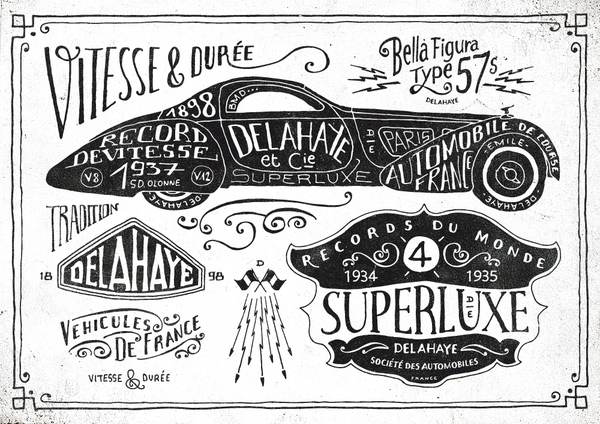 VITESSE & DURÉE
Bella Figura
TYPE 57s
DELAHAYE
1898
BMD...
RECORD
DEVITESSE
V8 1937 V12
S.D. OLONNE
DELAHAYE
DELAHAYE
et Cie
SUPERLUXE
PARIS
AUTOMOBILE DE COURSE
FRANCE
EMILE
DELAHAYE
TRADITION
18 DELAHAYE 98
VEHICULES
DE FRANCE
VITESSE & DURÉE
D
RECORDS DU MONDE
1934 4 1935
SUPERLUXE
DELAHAYE
SOCIÉTÉ DES AUTOMOBILES
FRANCE